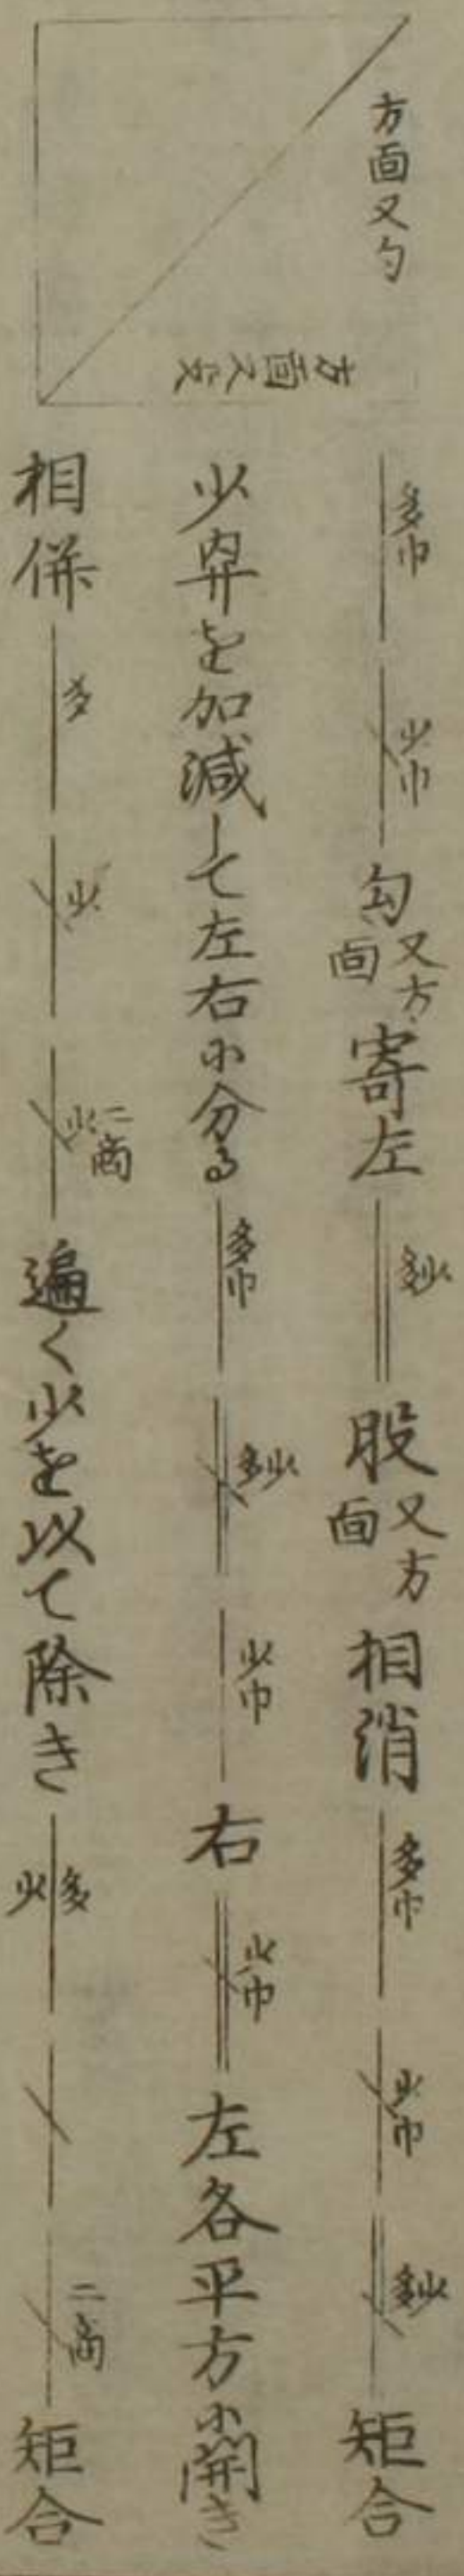 方面又勺
方面又殳
多巾 少巾 勾又方面寄左 多少 股又方面相消 多巾 少巾 多少 矩合
少冪を加減して左右に分る 多巾 多少 少巾 右 少巾 左各平方に開き
相併 多 少 二商少 遍く少を以て除き 多少 二商 矩合